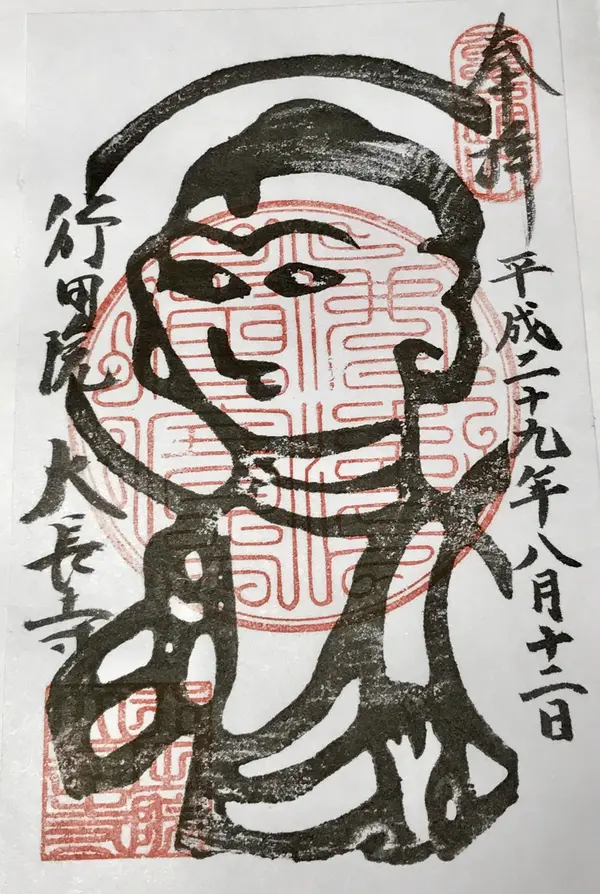 奉拝
平成二十九年八月十二日
行田院 大長寺